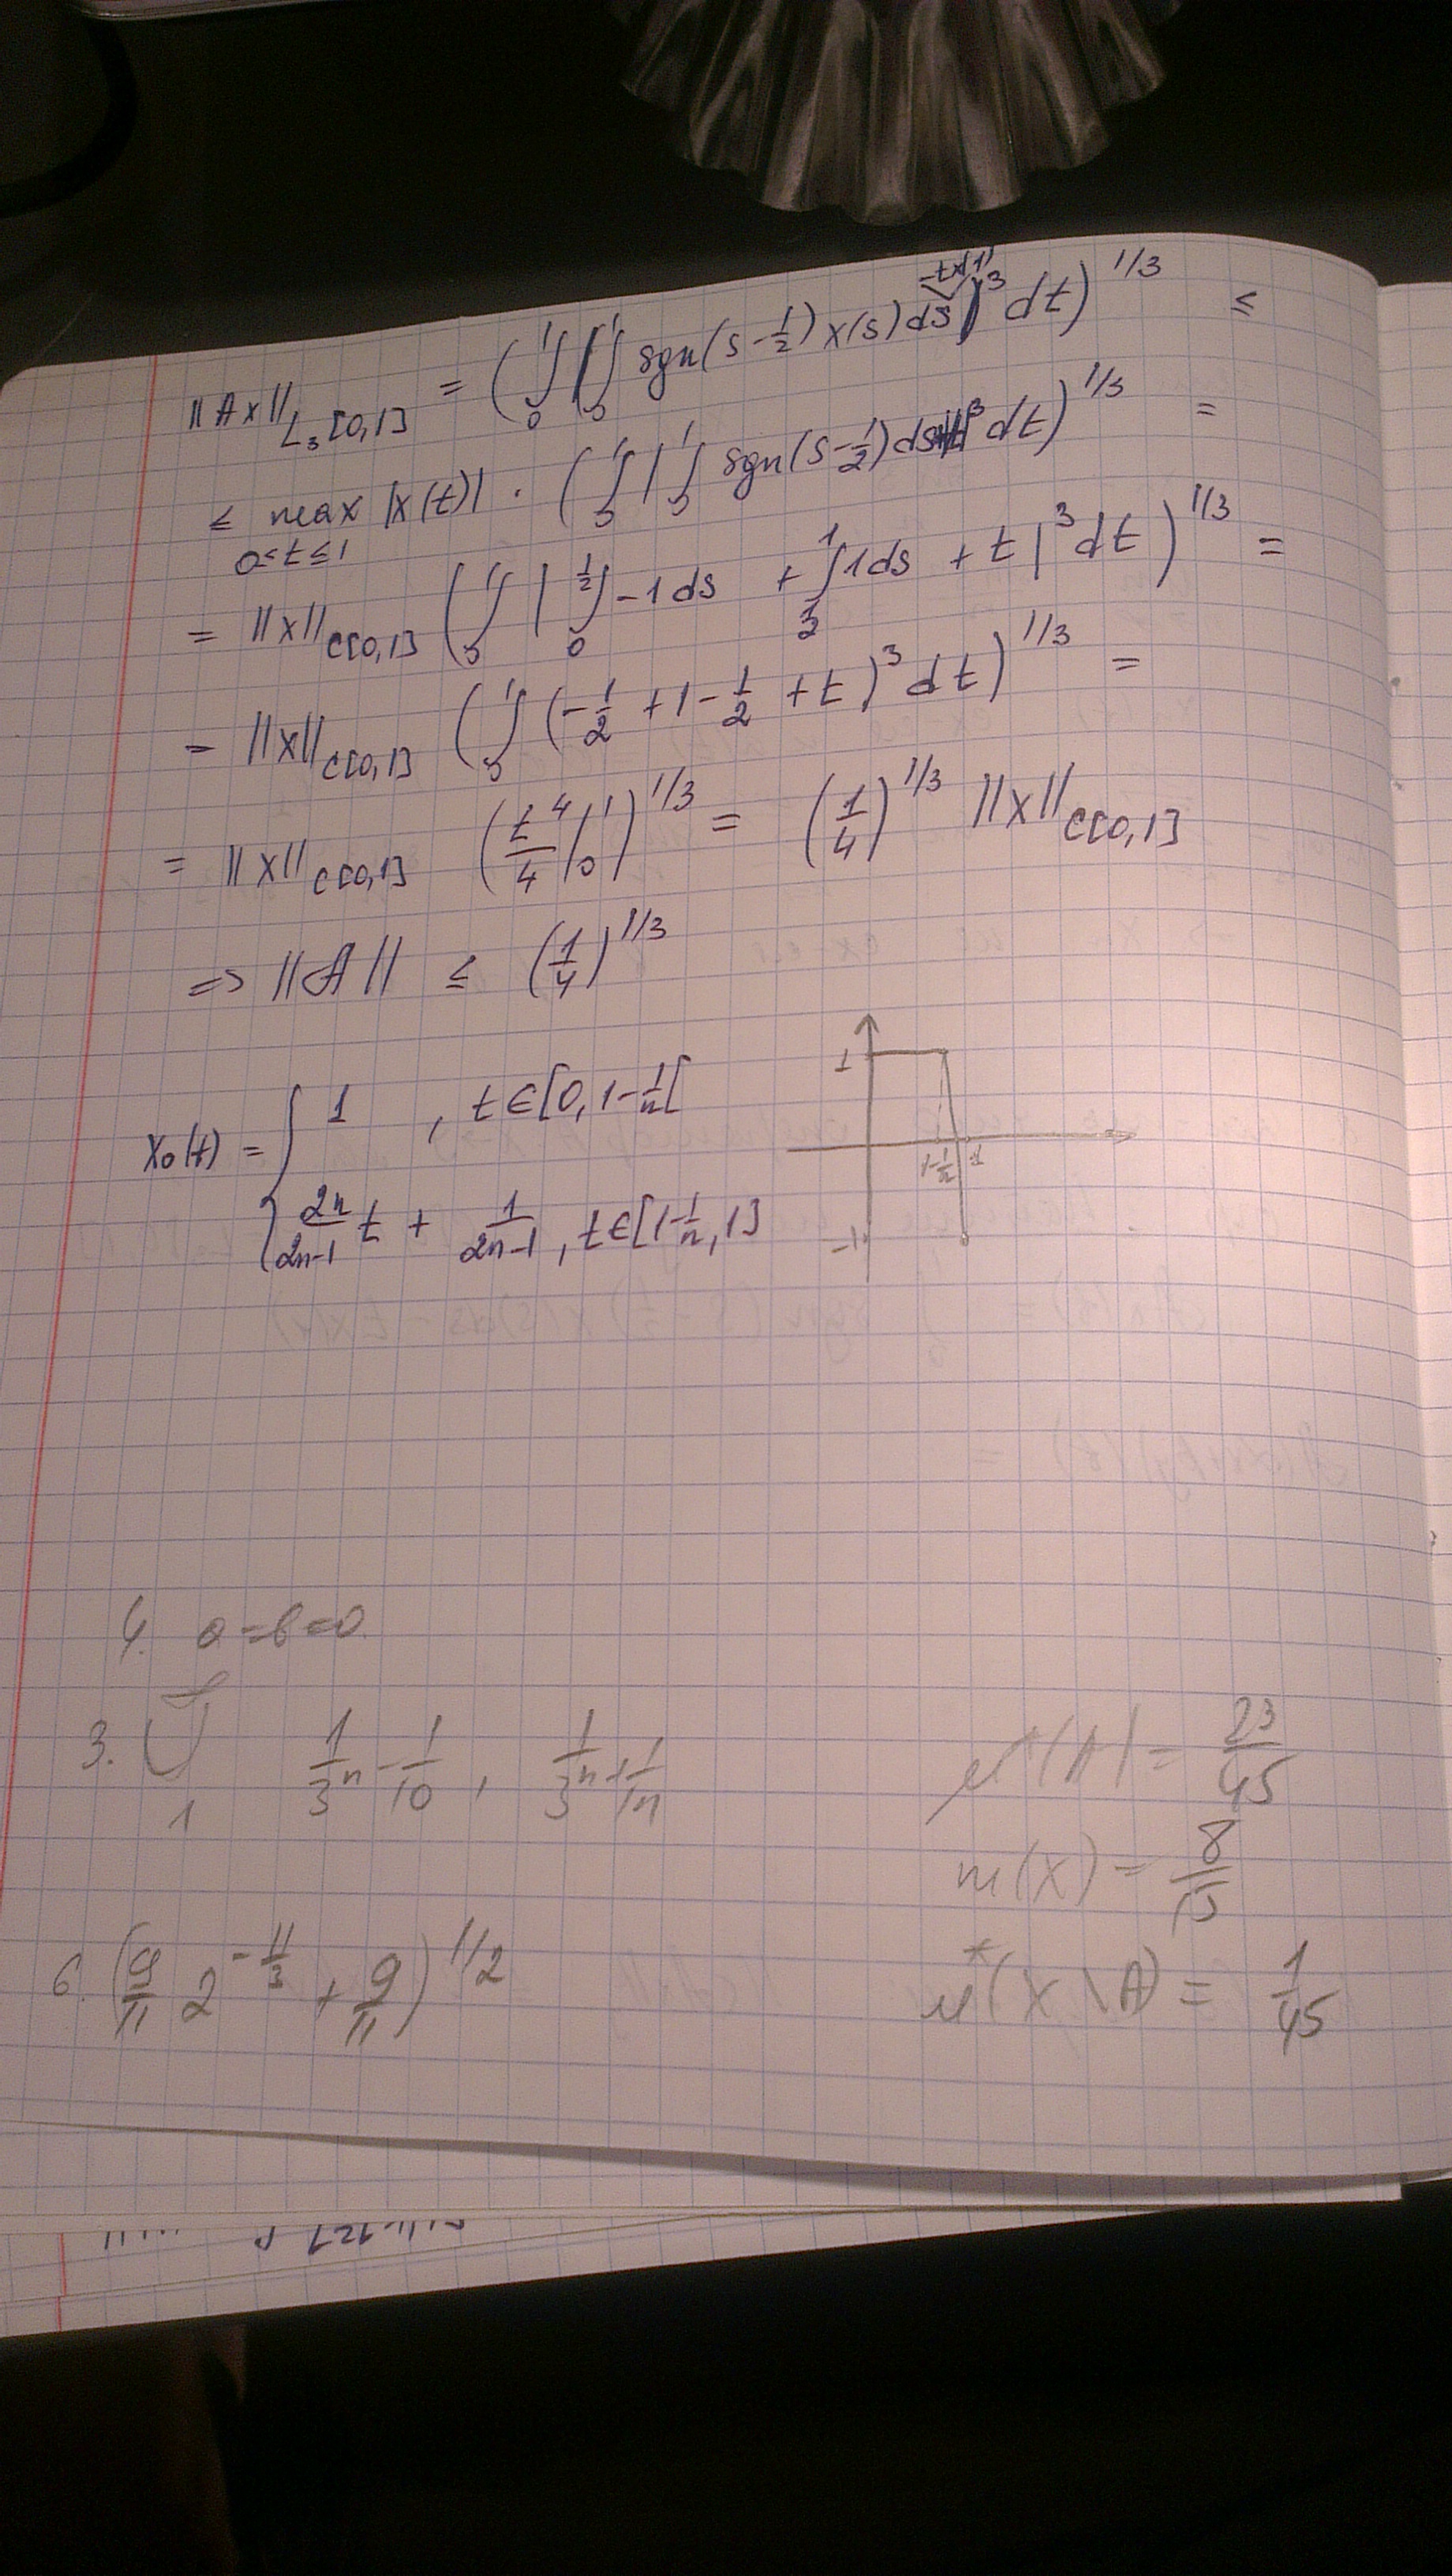 -tx(1)
||Ax||_{L_3[0,1]} = (∫_0^1 |∫_0^1 sgn(s-1/2) x(s) ds|^3 dt)^{1/3} ≤
≤ max_{0≤t≤1} |x(t)| · (∫_0^1 |∫_0^1 sgn(s-1/2) ds|^3 dt)^{1/3} =
= ||x||_{C[0,1]} (∫_0^1 | ∫_0^{1/2} -1 ds + ∫_{1/2}^1 1 ds + t |^3 dt)^{1/3} =
= ||x||_{C[0,1]} (∫_0^1 (-1/2 + 1 - 1/2 + t)^3 dt)^{1/3} =
= ||x||_{C[0,1]} (t^4/4 |_0^1)^{1/3} = (1/4)^{1/3} ||x||_{C[0,1]}
=> ||A|| ≤ (1/4)^{1/3}
x_0(t) = { 1 , t∈[0, 1-1/n[
2n/(2n-1) t + 1/(2n-1) , t∈[1-1/n, 1]
1
1-1/n 1
-1
4. a=b=0.
3. ∪ 1/3^n - 1/10 , 1/3^n + 1/10
1
μ*(A) = 23/45
m(X) = 8/15
6. (9/π 2^{-11/3} + 9/π)^{1/2}
μ*(X\A) = 1/45